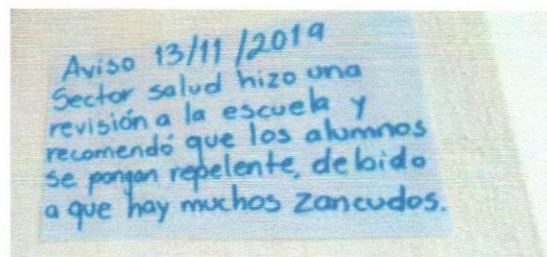 Aviso 13/11/2019
Sector salud hizo una
revisión a la escuela y
recomendó que los alumnos
se pongan repelente, debido
a que hay muchos zancudos.